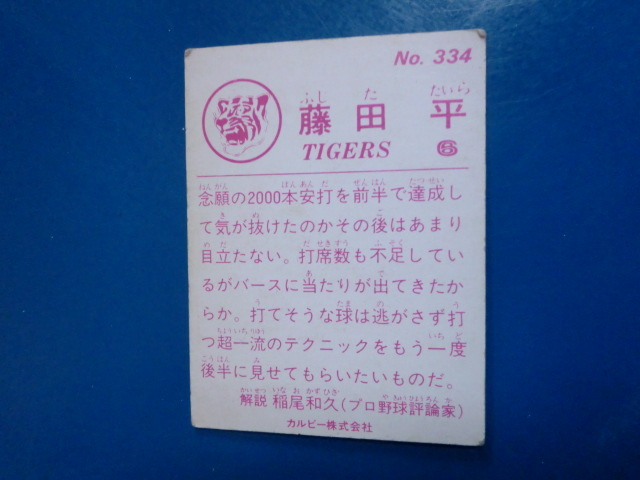 No. 334
藤田 平
TIGERS ⑥
念願の2000本安打を前半で達成し
て気が抜けたのかその後はあまり
目立たない。打席数も不足してい
るがバースに当たりが出てきたか
らか。打てそうな球は逃がさず打
つ超一流のテクニックをもう一度
後半に見せてもらいたいものだ。
解説 稲尾和久(プロ野球評論家)
カルビー株式会社